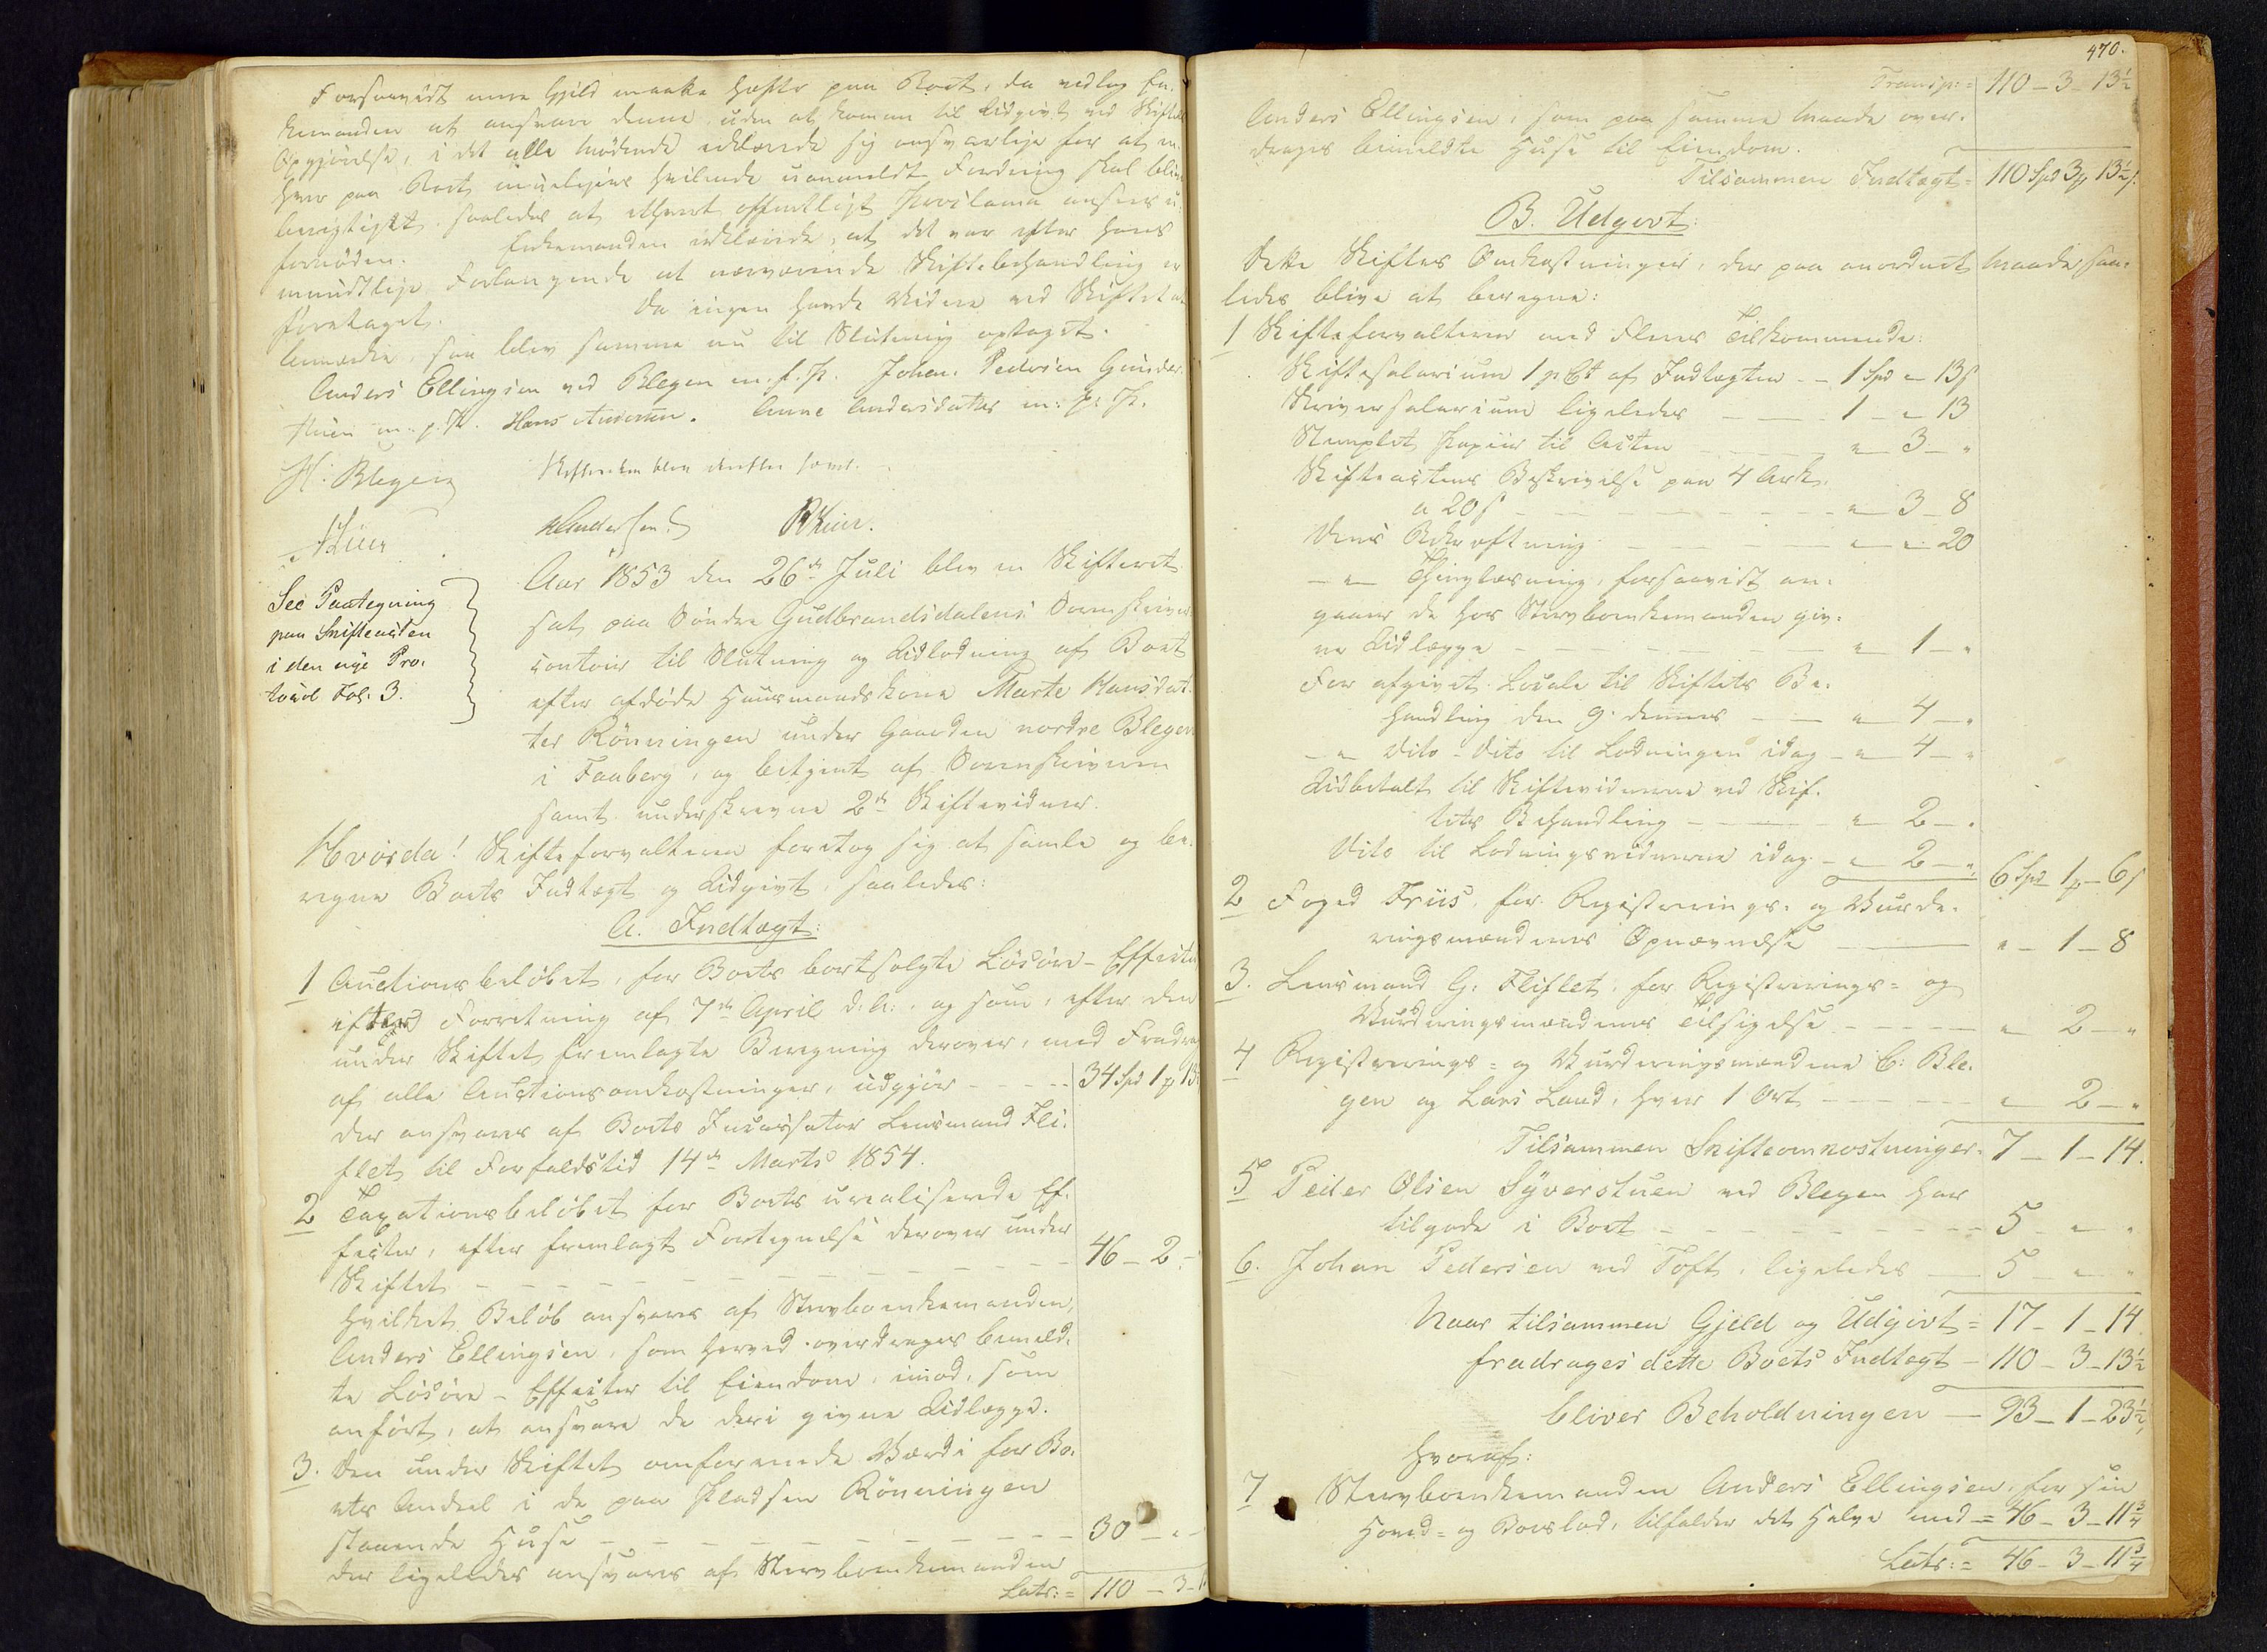 Forsaavidt mere Gjeld maatte hefte paa Boet, da vedtog En-
kemanden at ansvare denne uden at komme til Udgivt ved Skiftets
Opgjørelse, i det alle Mødende erklærede sig ansvarlige for at en-
hver paa Boet muligens hvilende uanmeldt Fordring skal blive
berigtiget, saaledes at ethvert offentligt Proclama ansees u-
fornöden. Enkemanden erklærede, at det var efter hans
mundtlige Forlangende at nærværende Skiftebehandling er
foretaget. Da ingen havde Videre ved Skiftet at
bemærke, saa blev samme nu til Slutning optaget.
Anders Ellingsen ved Blegen m. f. P. Johan Pedersen Gunder-
stuen m. p. P. Hans Andersen. Anne Andersdatter m: p: P.
H: Blegen Skifteretten blev derefter hævet.
Aar 1853 den 26de Juli blev en Skifteret
sat paa Söndre Gudbrandsdalens Sorenskriver-
contoir til Slutning og Udlodning af Boet
efter afdöde Huusmandskone Marte Hansdat-
ter Rönningen under Gaarden nordre Blegen
i Faaberg, og betjent af Sorenskriveren
samt underskrevne 2de Skiftevidner.
See Paategning
paa Skifteacten
i den nye Pro-
tocol Fol. 3.
Hvorda! Skifteforvalteren foretog sig at samle og be-
regne Boets Indtægt og Udgivt, saaledes:
A. Indtægt:
1 Auctionsbelöbet, for Boets bortsolgte Lösöre-Effecter
efter Forretning af 7de April d. A. og som, efter den
under Skiftet fremlagte Beregning derover, med Fradrag
af alle Auctionsomkostninger, udgjör - - - 34 Spd 1 # 13
der ansvares af Boets Incassator Lensmand Fli-
flet til Forfaldstid 14de Marts 1854.
2 Taxationsbelöbet for Boets urealiserede Ef-
fecter, efter fremlagt Fortegnelse derover under
Skiftet - - - 46 - 2 -
hvilket Belöb ansvares af Stervboenkemanden,
Anders Ellingsen, som herved overdrages bemeld-
te Lösöre-Effecter til Eiendom, imod, som
anfört, at ansvare de deri givne Udlægge.
3. Den under Skiftet omforenede Værdi for Bo-
ets Andeel i de paa Pladsen Rönningen
staaende Huse - - - 30 - " -
der ligeledes ansvares af Stervboenkemanden
Lats: = 110 - 3 -
470.
Transp: = 110 - 3 - 13½
Anders Ellingsen, som paa samme Maade over-
drages bemeldte Huse til Eiendom.
Tilsammen Indtægt = 110 Spd 3 # 13½ s.
B. Udgivt:
Dette Skiftes Omkostninger, der paa anordnet Maade saa-
ledes blive at beregne:
1 Skifteforvalteren med Fleres Tilkommende:
Skiftesalarium 1 pCt af Indtægten - - 1 Spd " 13 s
Skriversalarium ligeledes - - 1 - " 13
Stemplet Papiir til Acten - - " 3 - "
Skifteactens Beskrivelse paa 4 Ark.
a 20 s - - - " 3 - 8
Dens Bekræftning - - - " " 20
- " - Thinglæsning, forsaavidt an-
gaaer de hos Stervboenkemanden giv-
ne Udlægge - - - " 1 - "
For afgivet Locale til Skiftets Be-
handling den 9. dennes - - " 4 - "
- " - Dito - Dito til Lodningen idag - " 4 - "
Udbetalt til Skiftevidnerne ved Skif-
tets Behandling - - - " 2 - "
Dito til Lodningsvidnerne idag - " 2 - " 6 Spd 1 # 6 s
2 Foged Friis, for Registrerings- og Vurde-
ringsmændenes Opnævnelse - - " - 1 - 8
3. Lensmand G. Fliflet, for Registrerings- og
Vurderingsmændenes Tilsigelse - - - " 2 - "
4 Registrerings- og Vurderingsmændene C: Ble-
gen og Lars Laud, hver 1 Ort - - - " 2 - "
Tilsammen Skifteomkostninger = 7 - 1 - 14.
5 Peder Olsen Syverstuen ved Blegen har
tilgode i Boet - - - 5 - " - "
6. Johan Pedersen ved Toft, ligeledes - 5 - " - "
Naar tilsammen Gjeld og Udgivt = 17 - 1 - 14
fradrages dette Boets Indtægt - 110 - 3 - 13½
bliver Beholdningen - 93 - 1 - 23½,
hvoraf:
7 Stervboenkemanden Anders Ellingsen, for sin
Hoved- og Boeslod, tilfalder det Halve med = 46 - 3 - 11¾
Lats: = 46 - 3 - 11¾